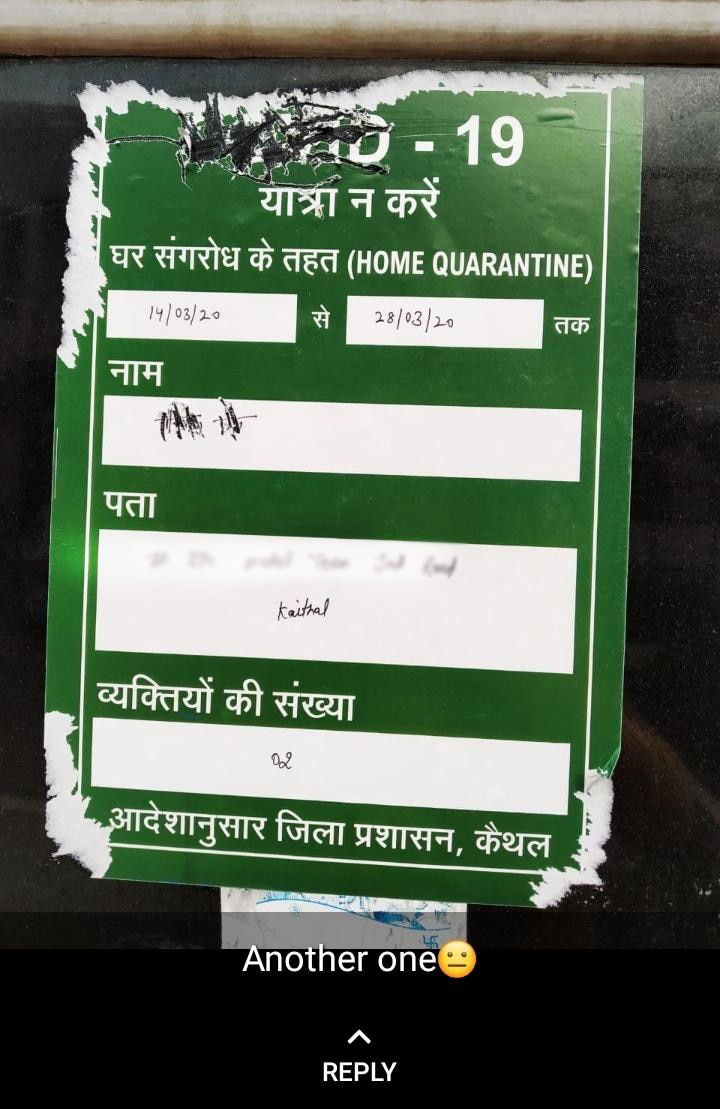 - 19
यात्रा न करें
घर संगरोध के तहत (HOME QUARANTINE)
14/03/20 से 28/03/20 तक
नाम
पता
Kaithal
व्यक्तियों की संख्या
02
आदेशानुसार जिला प्रशासन, कैथल
Another one😐
REPLY